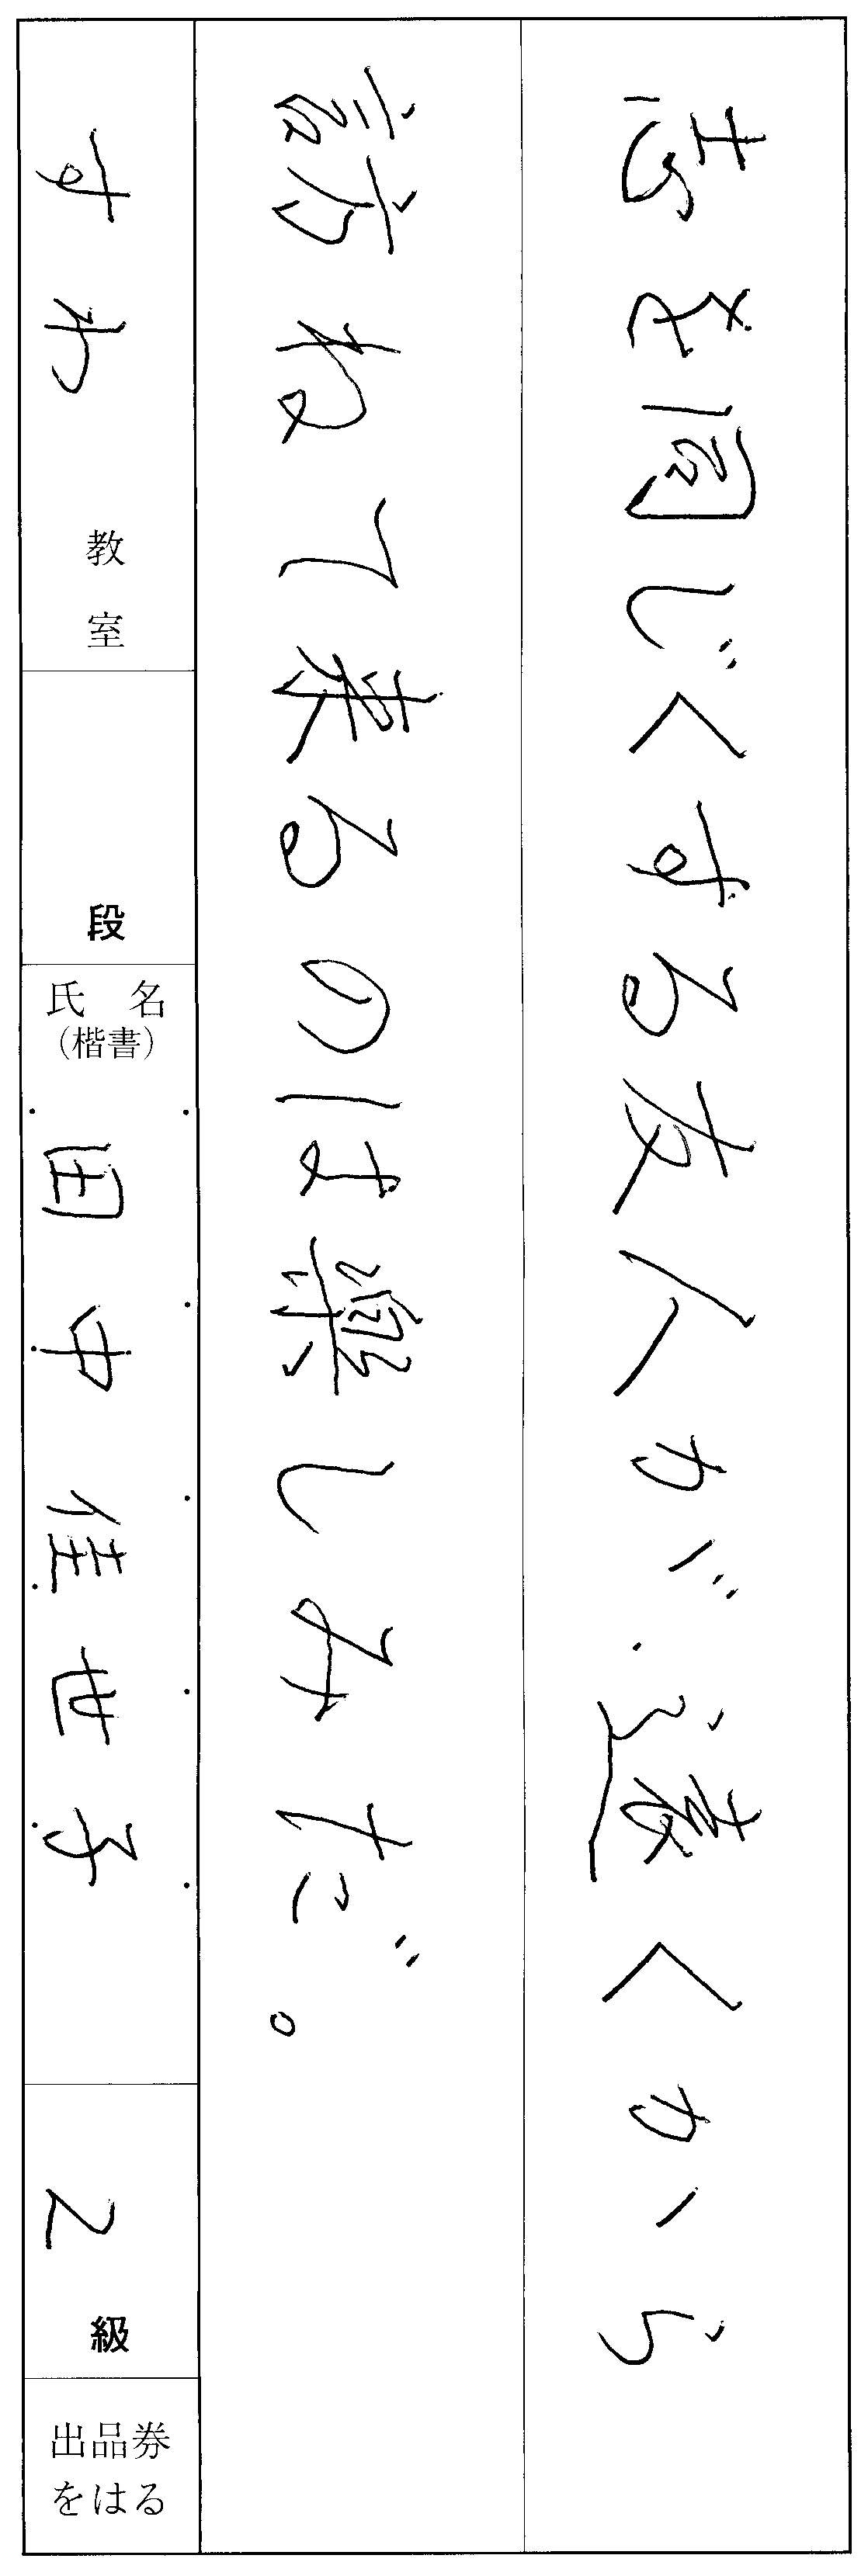 志を同じくする友人が、遠くから
訪ねて来るのは楽しみだ。
すわ 教室
段
氏名
(楷書)
田中佳世子
2 級
出品券
をはる